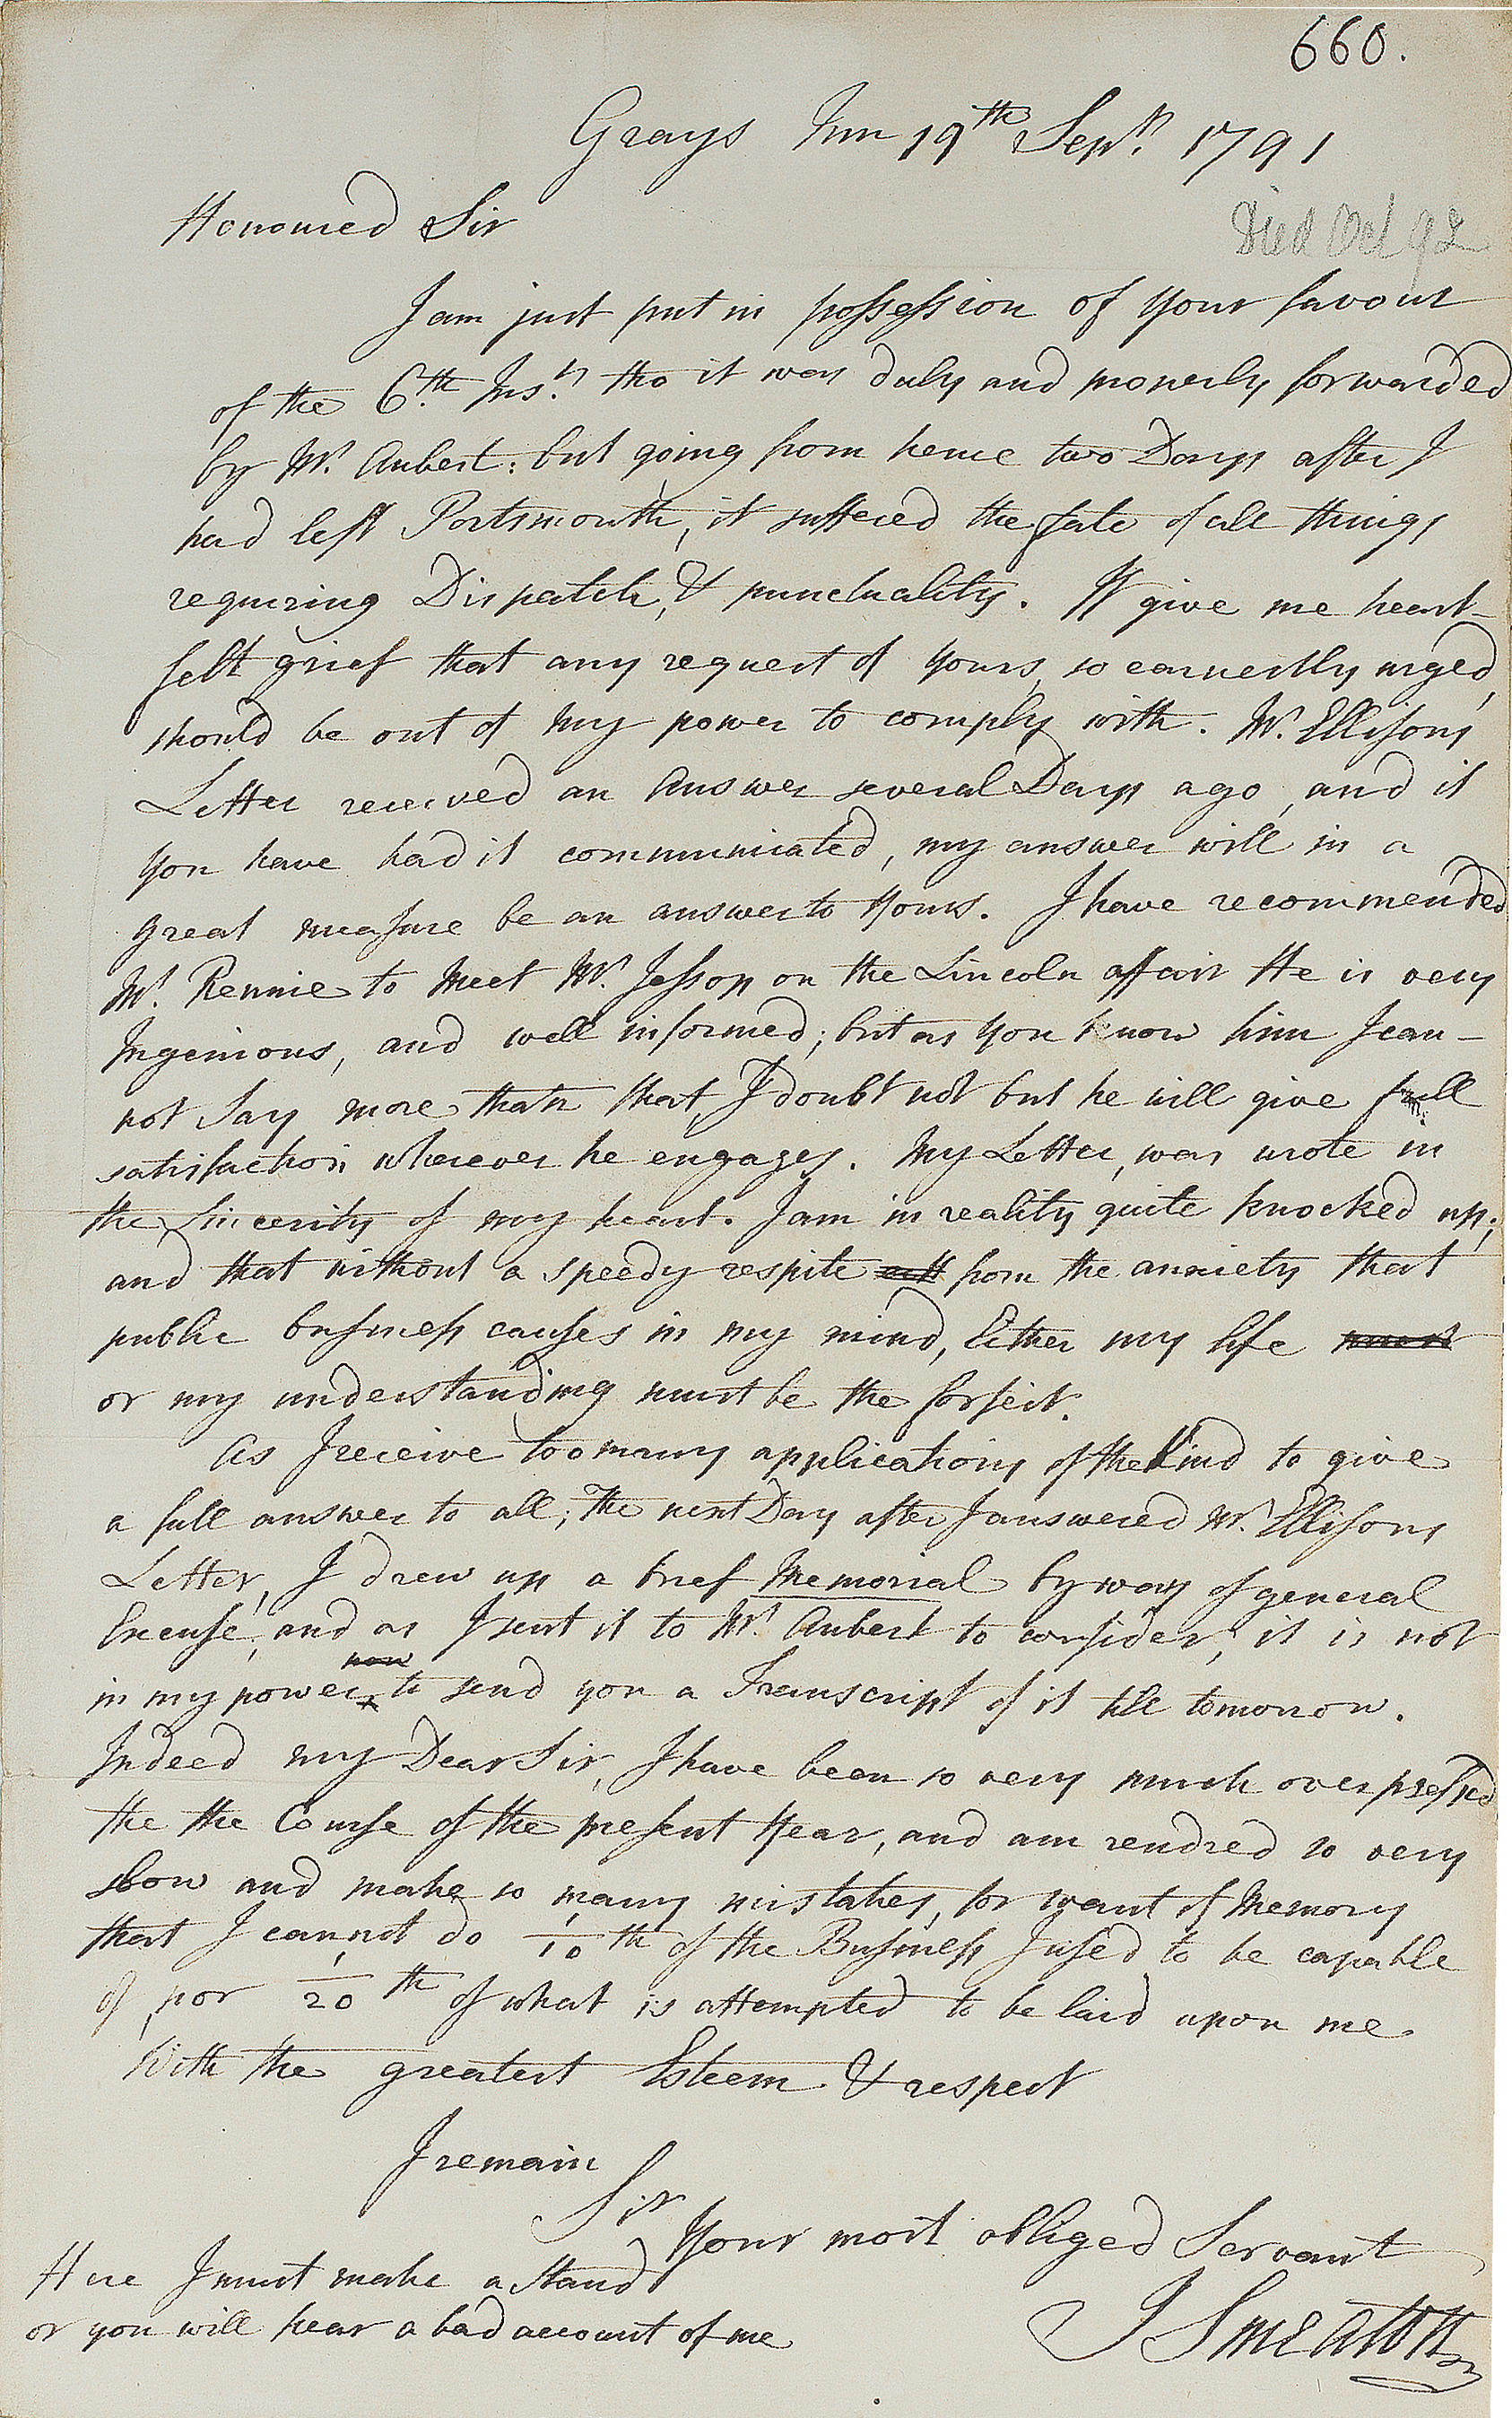 660.
Grays Inn 19th Sepr. 1791
Honoured Sir
Died Oct 92
I am just put in possession of your favour
of the 6th. Inst. tho it was duly and properly forwarded
by Mr. Aubert: but going from hence two Days after I
had left Portsmouth, it suffered the fate of all things
requiring Dispatch, & punctuality. It give me heart-
felt grief that any request of yours, so earnestly urged,
should be out of my power to comply with. Mr. Ellisons
Letter received an Answer several Days ago, and if
you have had it communicated, my answer will in a
great measure be an answer to yours. I have recommended
Mr. Rennie to meet Mr. Jessop on the Lincoln affair He is very
Ingenious, and well informed; but as you know him I can-
not say more than that I doubt not but he will give full
satisfaction wherever he engages. My Letter, was wrote in
the Sincerity of my heart. I am in reality quite knocked up;
and that without a speedy respite from the anxiety that
public business causes in my mind, Either my life must
or my understanding must be the forfeit.
As I receive too many applications of the kind to give
a full answer to all; The next Day after I answered Mr. Ellisons
Letter, I drew up a brief Memorial by way of general
Excuse; and as I sent it to Mr. Aubert to consider, it is not
now
in my power to send you a Transcript of it till tomorrow.
Indeed my Dear Sir, I have been so very much overpressed
the the Course of the present Year, and am rendred so very
slow and make so many mistakes, for want of Memory
that I cannot do 1/10th of the Business I used to be capable
of, nor 1/20th of what is attempted to be laid upon me
With the greatest Esteem & respect
I remain
Sir
Your most obliged Servant
Here I must make a Stand
or you will hear a bad account of me
J Smeaton